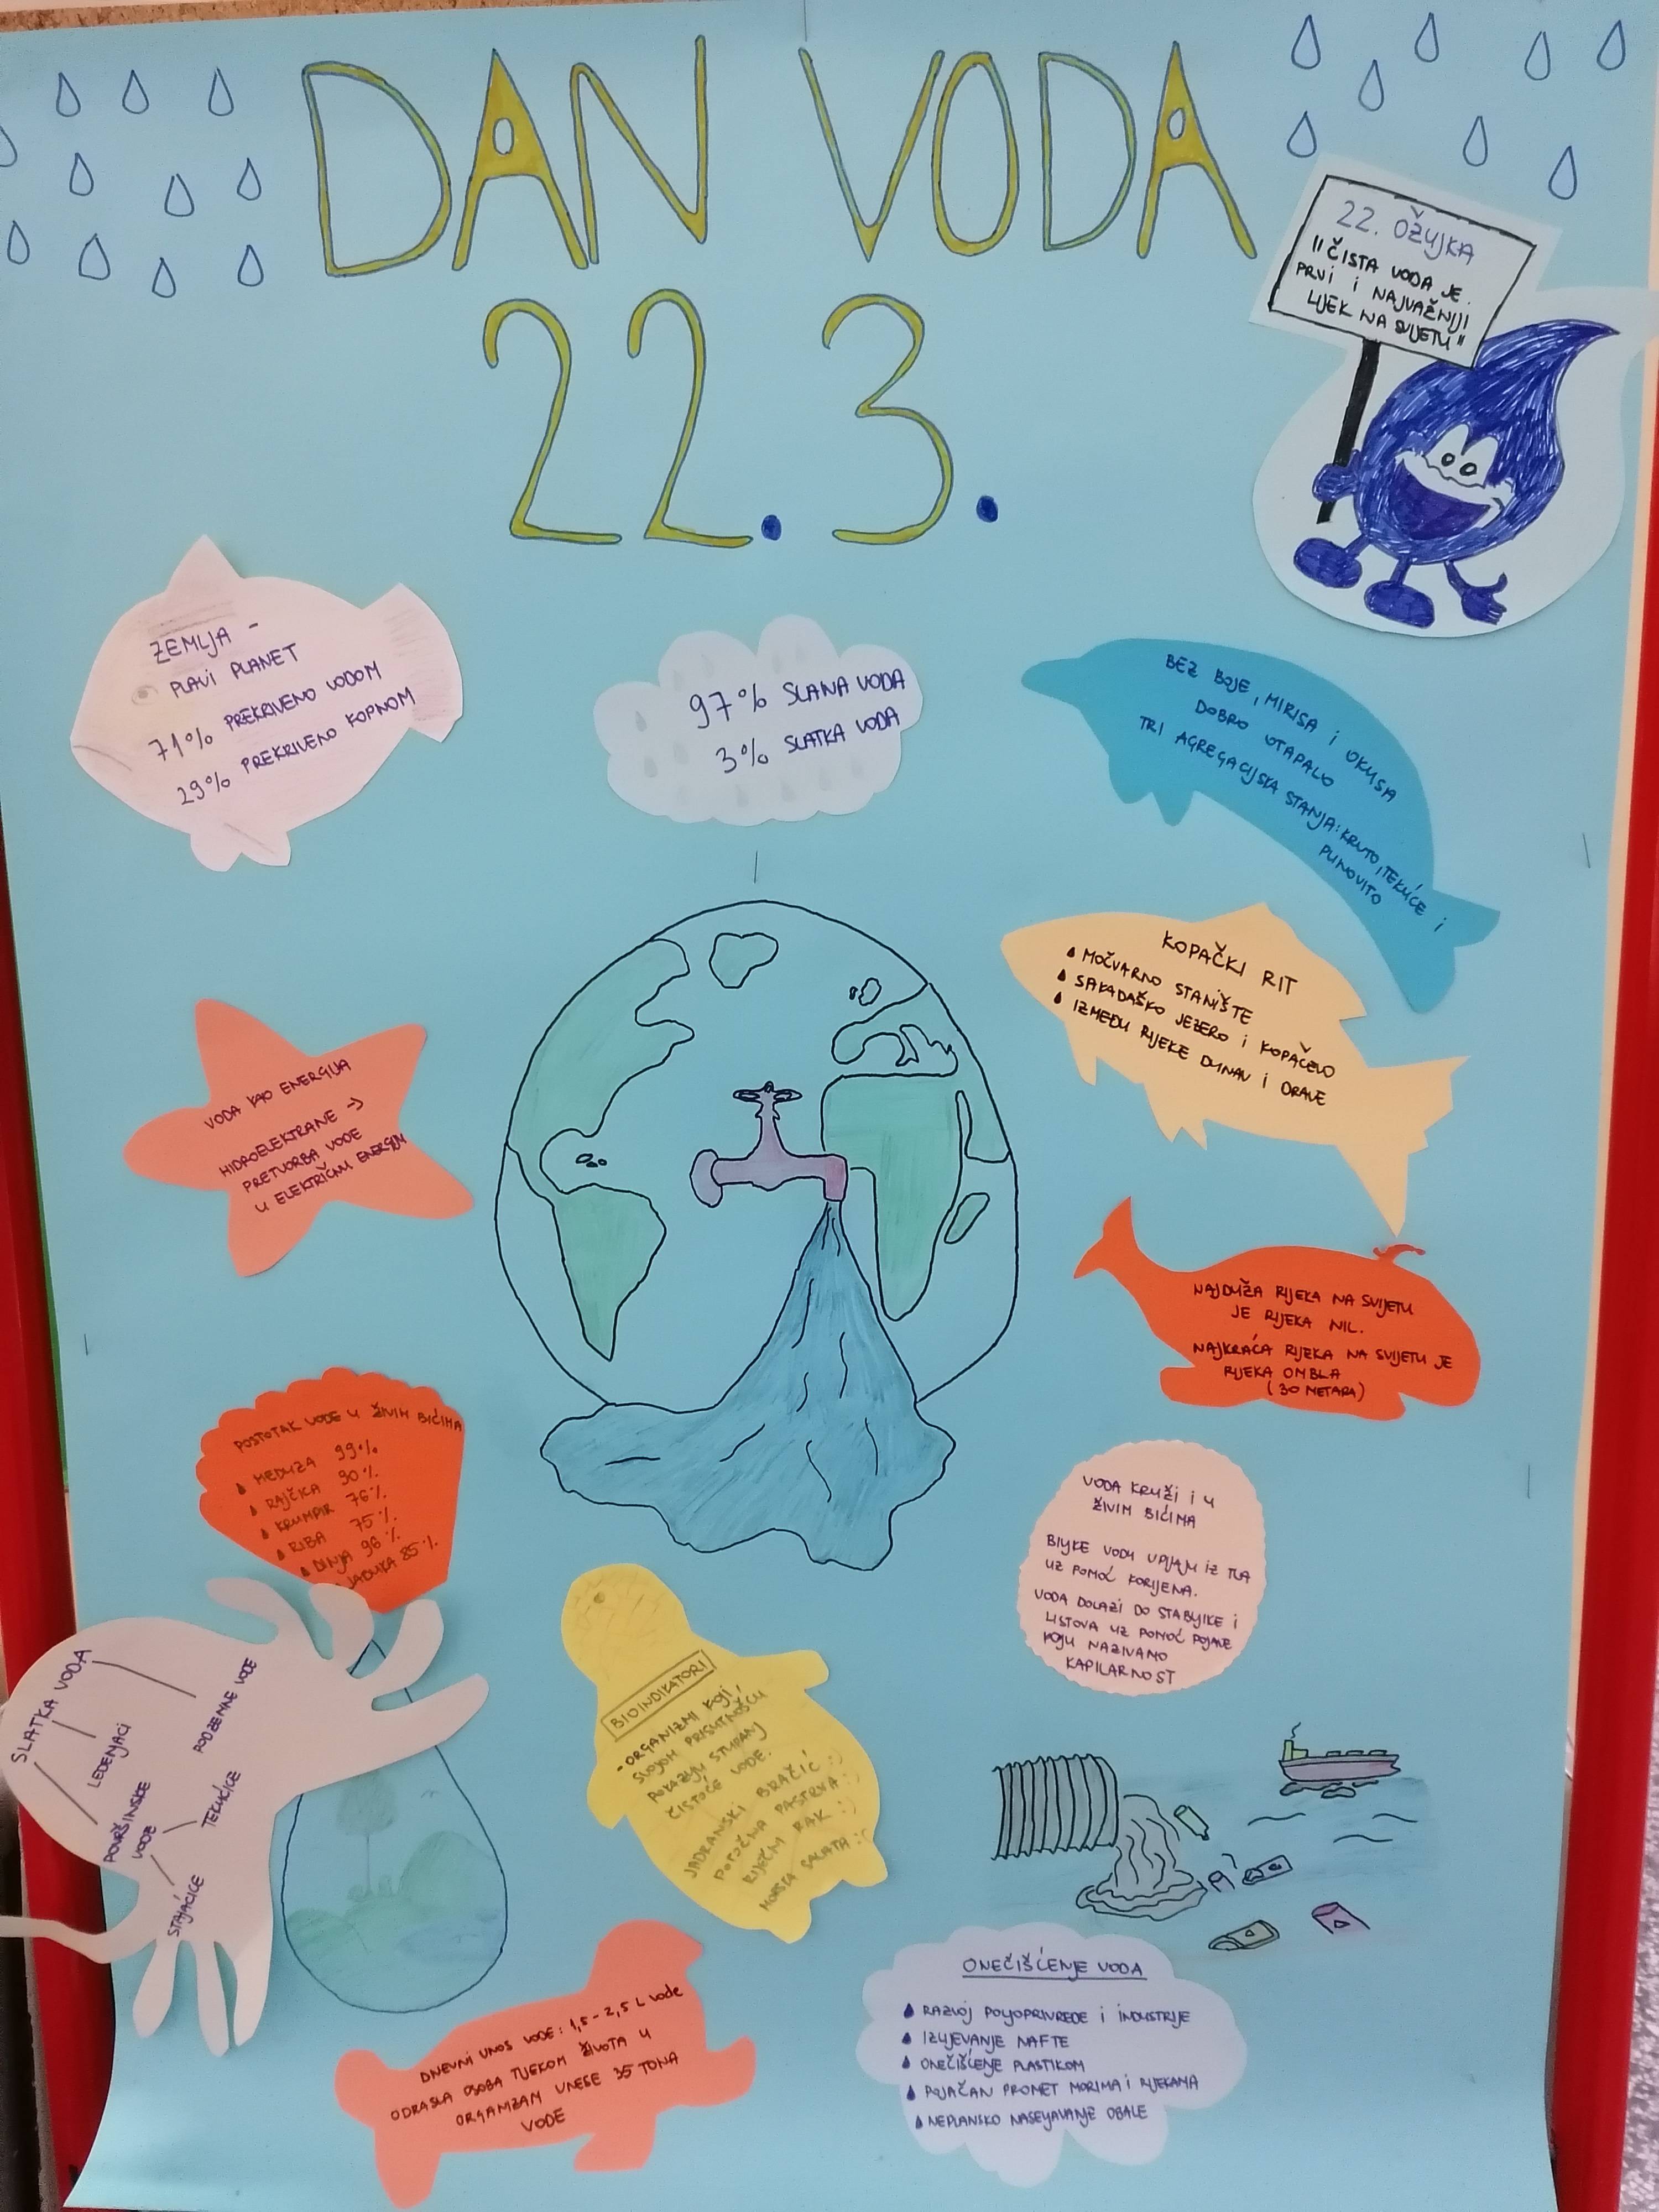 DAN VODA
22.3.
22. OŽUJKA
"ČISTA VODA JE
PRVI I NAJVAŽNIJI
LIJEK NA SVIJETU"
ZEMLJA -
PLAVI PLANET
71% PREKRIVENO VODOM
29% PREKRIVENO KOPNOM
97% SLANA VODA
3% SLATKA VODA
BEZ BOJE, MIRISA I OKUSA
DOBRO OTAPALO
TRI AGREGACIJSKA STANJA: KRUTO, TEKUĆE I
PLINOVITO
KOPAČKI RIT
MOČVARNO STANIŠTE
SAKADAŠKO JEZERO I KOPAČEVO
IZMEĐU RIJEKE DUNAV I DRAVE
VODA KAO ENERGIJA
HIDROELEKTRANE →
PRETVORBA VODE
U ELEKTRIČNU ENERGIJU
NAJDUŽA RIJEKA NA SVIJETU
JE RIJEKA NIL.
NAJKRAĆA RIJEKA NA SVIJETU JE
RIJEKA OMBLA
(30 METARA)
POSTOTAK VODE U ŽIVIM BIĆIMA
MEDUZA 99%
RAJČICA 90%
KRUMPIR 76%
RIBA 75%
DINJA 96%
JABUKA 85%
VODA KRUŽI I U
ŽIVIM BIĆIMA
BILJKE VODU UPIJAJU IZ TLA
UZ POMOĆ KORIJENA.
VODA DOLAZI DO STABLJIKE I
LISTOVA UZ POMOĆ POJAVE
KOJU NAZIVAMO
KAPILARNOST
SLATKA VODA
PODZEMNE VODE
LEDENJACI
POVRŠINSKE
VODE
TEKUĆICE
STAJAĆICE
BIOINDIKATORI
-ORGANIZMI KOJI,
SVOJOM PRISUTNOŠĆU
POKAZUJU STUPANJ
ČISTOĆE VODE.
JADRANSKI BRAČIĆ :)
POTOČNA PASTRVA :)
RIJEČNI RAK :)
MORSKA SALATA :(
DNEVNI UNOS VODE: 1,5-2,5 L vode
ODRASLA OSOBA TIJEKOM ŽIVOTA U
ORGANIZAM UNESE 35 TONA
VODE
ONEČIŠĆENJE VODA
RAZVOJ POLJOPRIVREDE I INDUSTRIJE
IZLIJEVANJE NAFTE
ONEČIŠĆENJE PLASTIKOM
POJAČAN PROMET MORIMA I RIJEKAMA
NEPLANSKO NASELJAVANJE OBALE